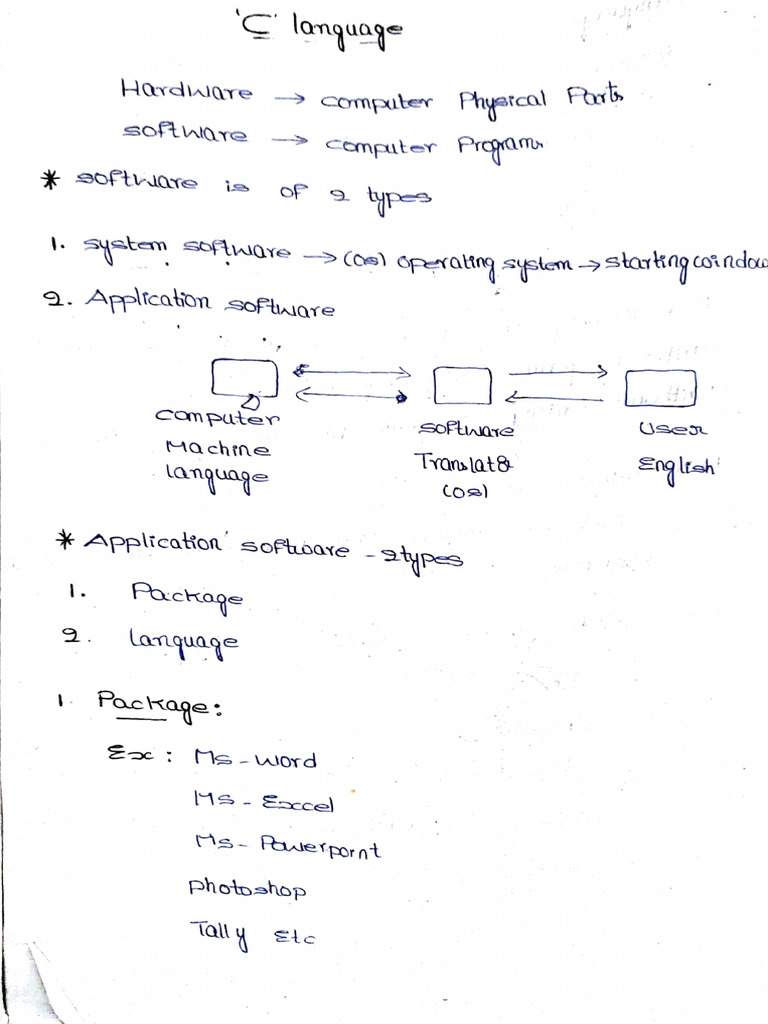 'C' language
Hardware → computer Physical Parts
software → computer Programs
* software is of 2 types
1. system software → (os) operating system → starting window
2. Application software
computer software User
Machine Translator English
language (os)
* Application software - 2types
1. Package
2. language
1. Package:
Ex: Ms-word
Ms-Exccel
Ms-Powerpornt
photoshop
Tally Etc